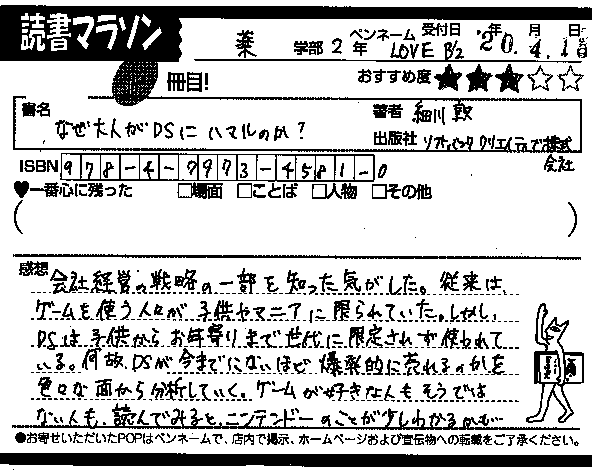 読書マラソン
薬 学部 2 年 ペンネーム LOVE B'z 受付日 '20年 4月 1 日
冊目!
おすすめ度 ★★★☆☆
書名 なぜ大人がDSにハマルのか?
著者 細川 敦
出版社 ソフトバンク クリエイティブ株式会社
ISBN 978-4-7973-4581-0
♥一番心に残った □場面 □ことば □人物 □その他
( )
感想 会社経営の戦略の一部を知った気がした。従来は、
ゲームを使う人々が子供やマニアに限られていた。しかし、
DSは子供からお年寄りまで世代に限定されず使われて
いる。何故、DSが今までにないほど爆発的に売れるのかを
色々な面から分析していく。ゲームが好きな人もそうでは
ない人も、読んでみると、ニンテンドーのことが少しわかるかも…
●お寄せいただいたPOPはペンネームで、店内で掲示、ホームページおよび宣伝物への転載をご了承ください。